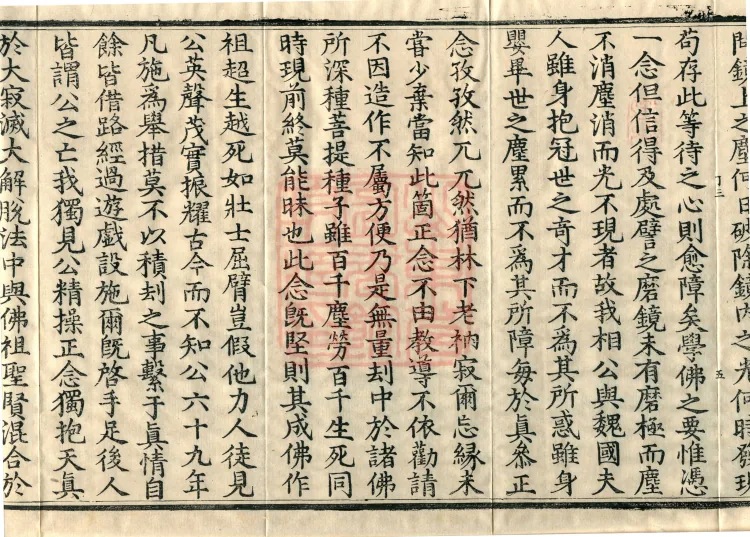 問鏡上之塵何日破除鏡内之光何時發現
五
苟存此等待之心則愈障矣學佛之要惟憑
一念但信得及處譬之磨鏡未有磨極而塵
不消塵消而光不現者故我相公與魏國夫
人雖身抱冠世之奇才而不爲其所惑雖身
嬰畢世之塵累而不爲其所障每於眞叅正
念孜孜然兀兀然猶林下老衲寂爾忘緣未
甞少棄當知此箇正念不由教導不依勸請
不因造作不屬方便乃是無量刦中於諸佛
所深種菩提種子雖百千塵勞百千生死同
時現前終莫能昧也此念旣堅則其成佛作
祖超生越死如壯士屈臂豈假他力人徒見
公英聲茂實振耀古今而不知公六十九年
凡施爲舉措莫不以積刦之事繫于眞情自
餘皆借路經過遊戲設施爾旣啓手足後人
皆謂公之亡我獨見公精操正念獨抱天眞
於大寂滅大解脫法中與佛祖聖賢混合於